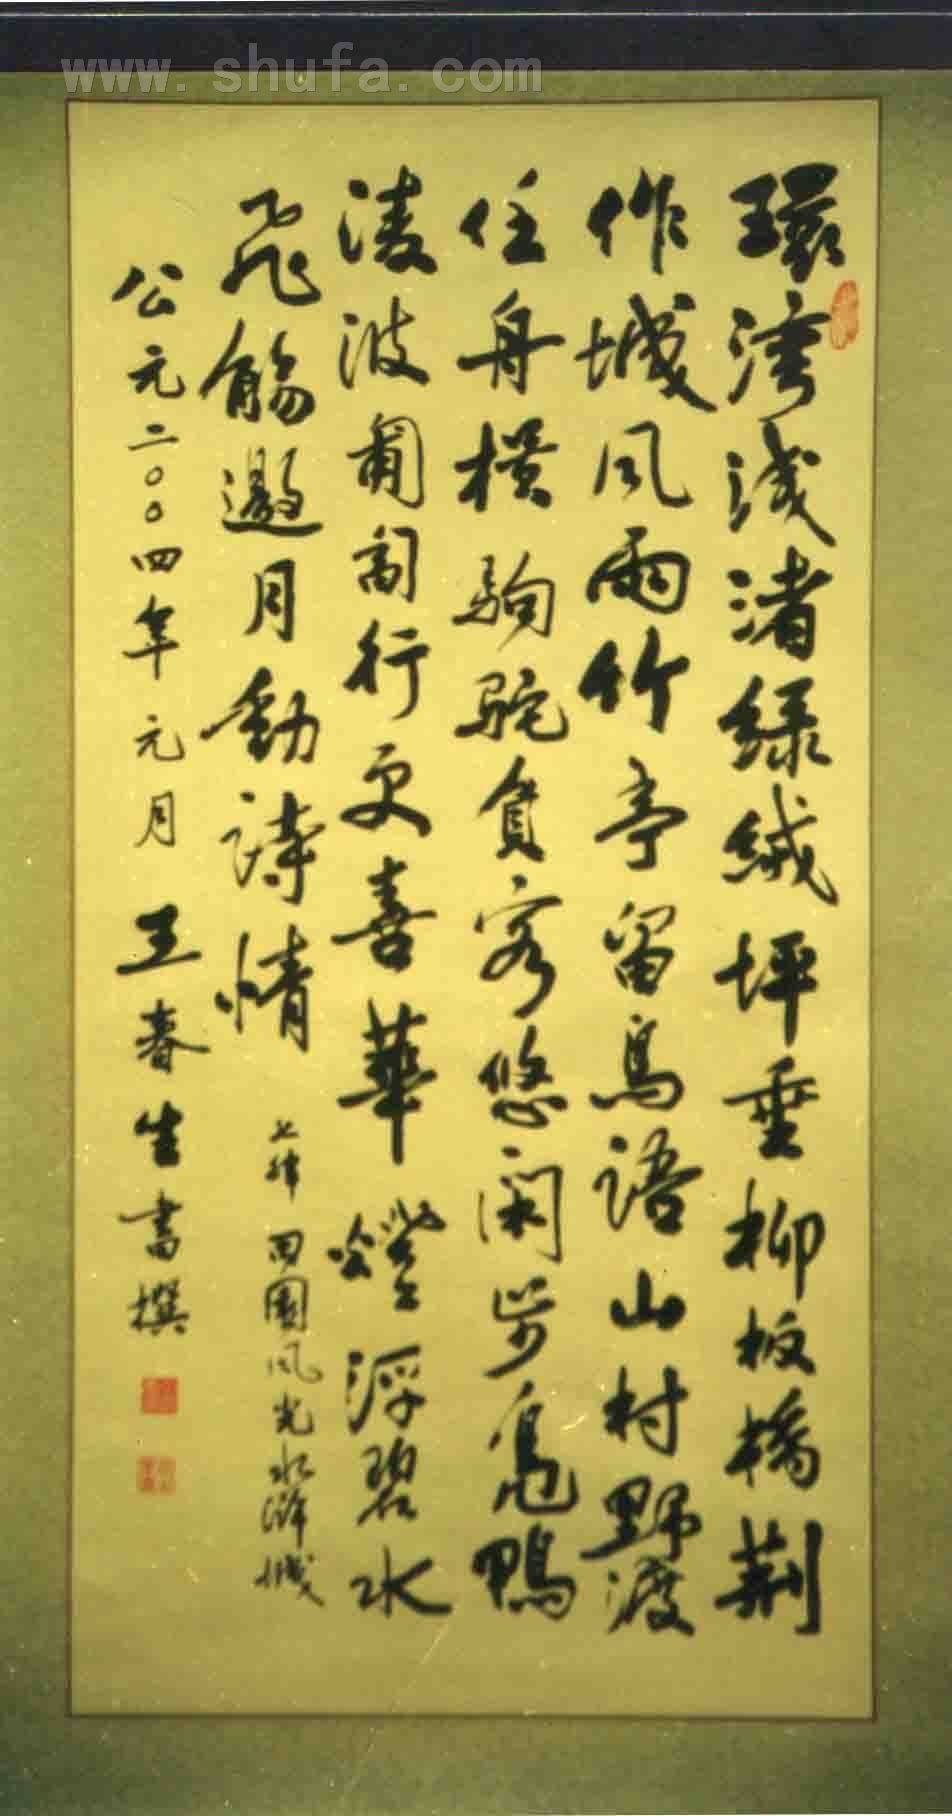 www.shufa.com
環灣淺渚綠絨坪垂柳板橋荊
作城風雨竹亭留鳥語山村野渡
任舟橫駒駝負客悠閑步鳧鴨
淩波匍匐行更喜華燈浮碧水
飛觴邀月動詩情 七律 田園風光水滸城
公元二〇〇四年元月 王春生書撰